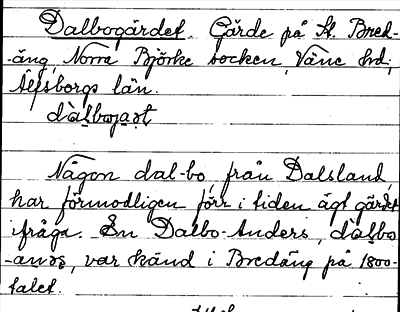 Dalbogärdet. Gärde på St. Bred-
-äng, Norra Björke socken, Väne hd,
Älfsborgs län.
dàlbojaʂt
Någon dal-bo, från Dalsland,
har förmodligen förr i tiden ägt gärdet
ifråga. En Dalbo-Anders, dàlbo
-andəʂ, var känd i Bredäng på 1800-
talet.